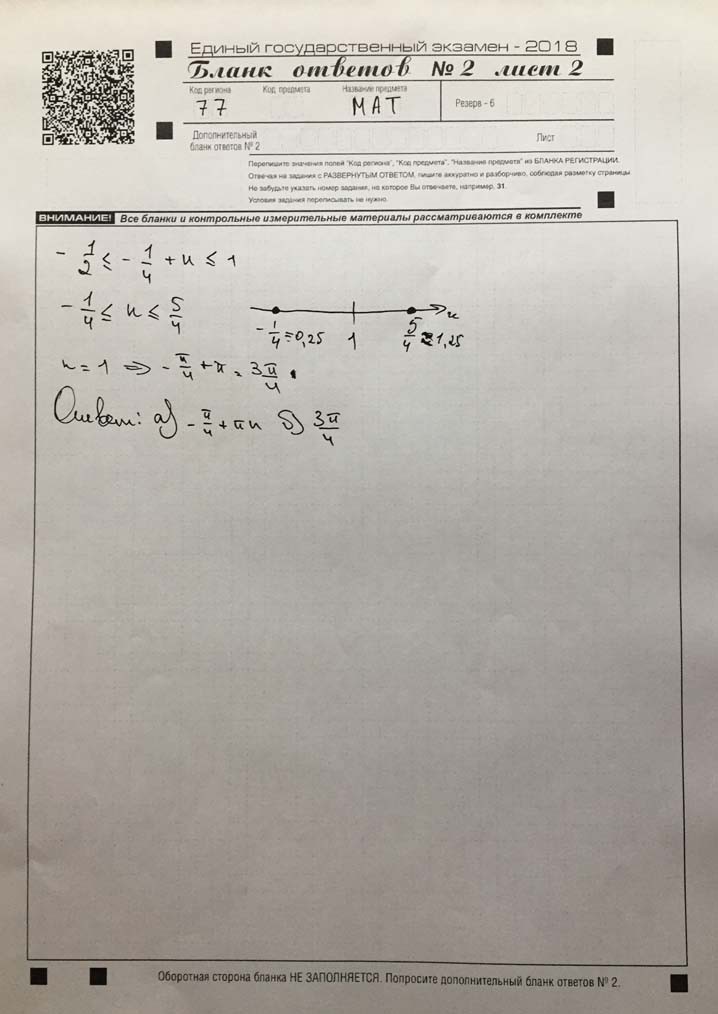 Единый государственный экзамен - 2018
Бланк ответов № 2 лист 2
Код региона Код предмета Название предмета
77 МАТ
Резерв - 6
Дополнительный бланк ответов № 2
Лист
Перепишите значения полей "Код региона", "Код предмета", "Название предмета" из БЛАНКА РЕГИСТРАЦИИ.
Отвечая на задания с РАЗВЕРНУТЫМ ОТВЕТОМ, пишите аккуратно и разборчиво, соблюдая разметку страницы.
Не забудьте указать номер задания, на которое Вы отвечаете, например, 31.
Условия задания переписывать не нужно.
ВНИМАНИЕ! Все бланки и контрольные измерительные материалы рассматриваются в комплекте
- 1/2 ≤ - 1/4 + n ≤ 1
- 1/4 ≤ n ≤ 5/4
n
- 1/4 = 0,25 1 5/4 = 1,25
n = 1 ⇒ - π/4 + π = 3π/4 .
Ответ: а) - π/4 + πn б) 3π/4
Оборотная сторона бланка НЕ ЗАПОЛНЯЕТСЯ. Попросите дополнительный бланк ответов № 2.